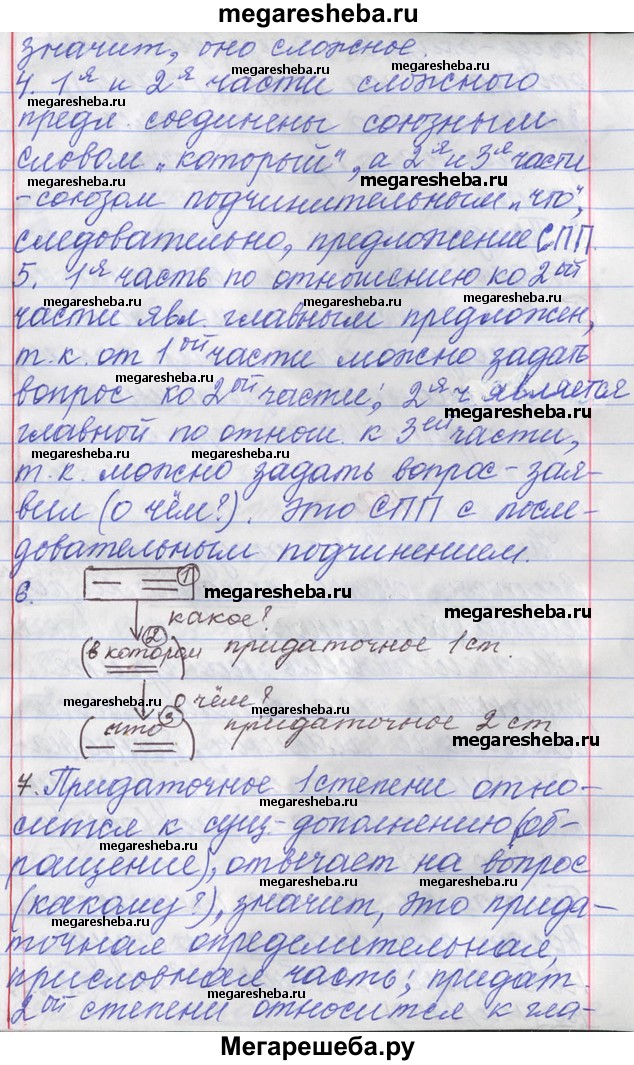 megaresheba.ru
значит, оно сложное.
4. 1я и 2я части сложного
megaresheba.ru
megaresheba.ru
предл. соединены союзным
словом „который“, а 2я и 3я части
megaresheba.ru
megaresheba.ru
-союзом подчинительным „что“,
следовательно, предложение СПП.
5. 1я часть по отношению ко 2ой
megaresheba.ru
megaresheba.ru
части явл главным предложен,
т.к. от 1ой части можно задать
megaresheba.ru
вопрос ко 2ой части; 2я ч является
megaresheba.ru
главной по отнош. к 3ей части,
megaresheba.ru
т.к. можно задать вопрос - зая-
вил (о чём?). Это СПП с после-
довательным подчинением.
6. 1 megaresheba.ru
какое?
megaresheba.ru
2
(в котором) придаточное 1 ст.
megaresheba.ru
о чём?
megaresheba.ru
3
(что) придаточное 2 ст
megaresheba.ru
7. Придаточное 1 степени отно-
megaresheba.ru
сится к сущ.-дополнению (об-
megaresheba.ru
ращение), отвечает на вопрос
megaresheba.ru
megaresheba.ru
(какому?), значит, это прида-
точная определительная,
megaresheba.ru
присловная часть; придат.
megaresheba.ru
2ой степени относится к гла-
Мегарешеба.ру